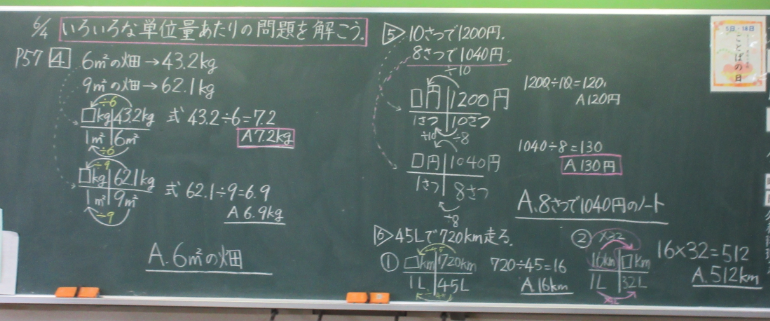 6/4 いろいろな単位量あたりの問題を解こう。
P57 4 6m²の畑→43.2kg
9m²の畑→62.1kg
÷6
□kg 43.2kg
1m² 6m²
÷6
式 43.2÷6=7.2
A 7.2kg
÷9
□kg 62.1kg
1m² 9m²
÷9
式 62.1÷9=6.9
A 6.9kg
A. 6m²の畑
5 10さつで1200円.
8さつで1040円.
÷10
□円 1200円
1さつ 10さつ
÷10
1200÷10=120
A 120円
÷8
□円 1040円
1さつ 8さつ
÷8
1040÷8=130
A 130円
A. 8さつで1040円のノート
6 45Lで720km走る.
①
÷45
□km 720km
1L 45L
÷45
720÷45=16
A. 16km
②
×32
16km □km
1L 32L
×32
16×32=512
A. 512km
ことばの日